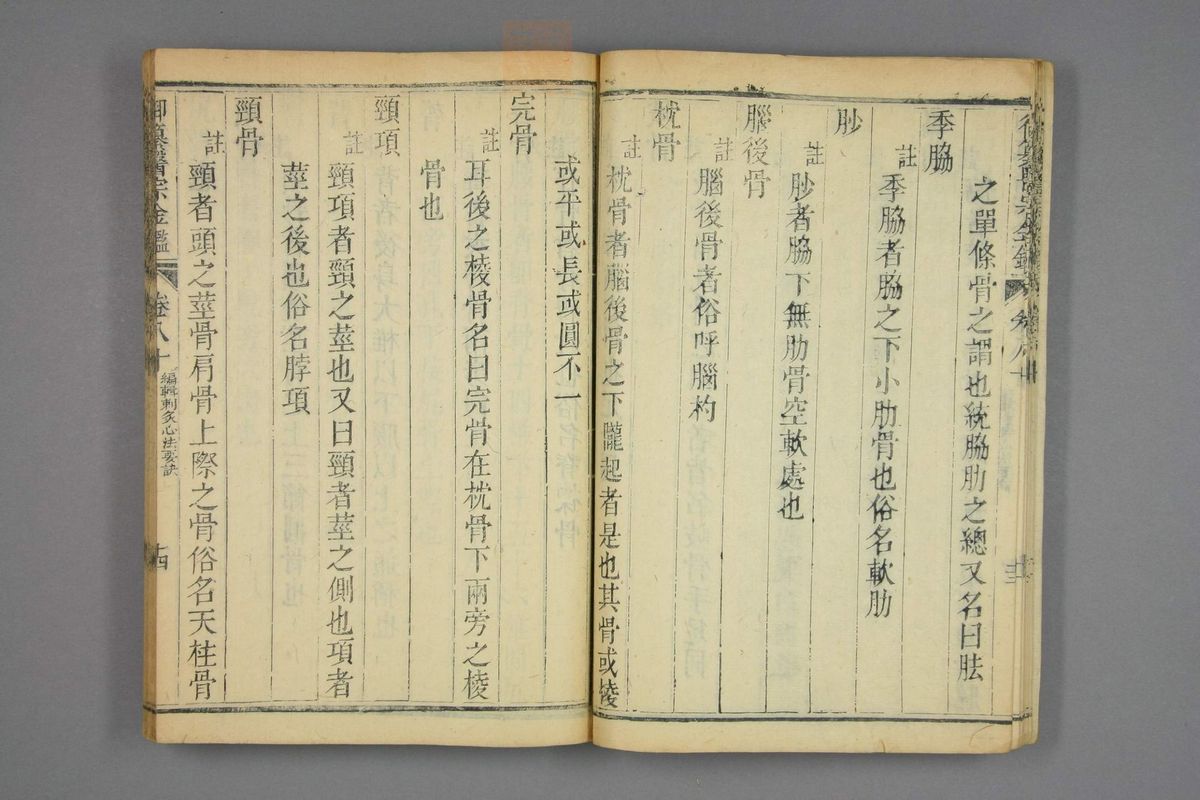 之單條骨之謂也統脇肋之總又名曰胠
季脇
註季脇者脇之下小肋骨也俗名軟肋
䏚
註䏚者脇下無肋骨空軟處也
腦後骨
註腦後骨者俗呼腦杓
枕骨
註枕骨者腦後骨之下隴起者是也其骨或稜
或平或長或圓不一
完骨
註耳後之棱骨名曰完骨在枕骨下兩旁之棱
骨也
頸項
註頸項者頸之莖也又曰頸者莖之側也項者
莖之後也俗名脖項
頸骨
註頸者頭之莖骨肩骨上際之骨俗名天柱骨
御纂醫宗金鑑 卷八十 編輯刺灸心法要訣 十四